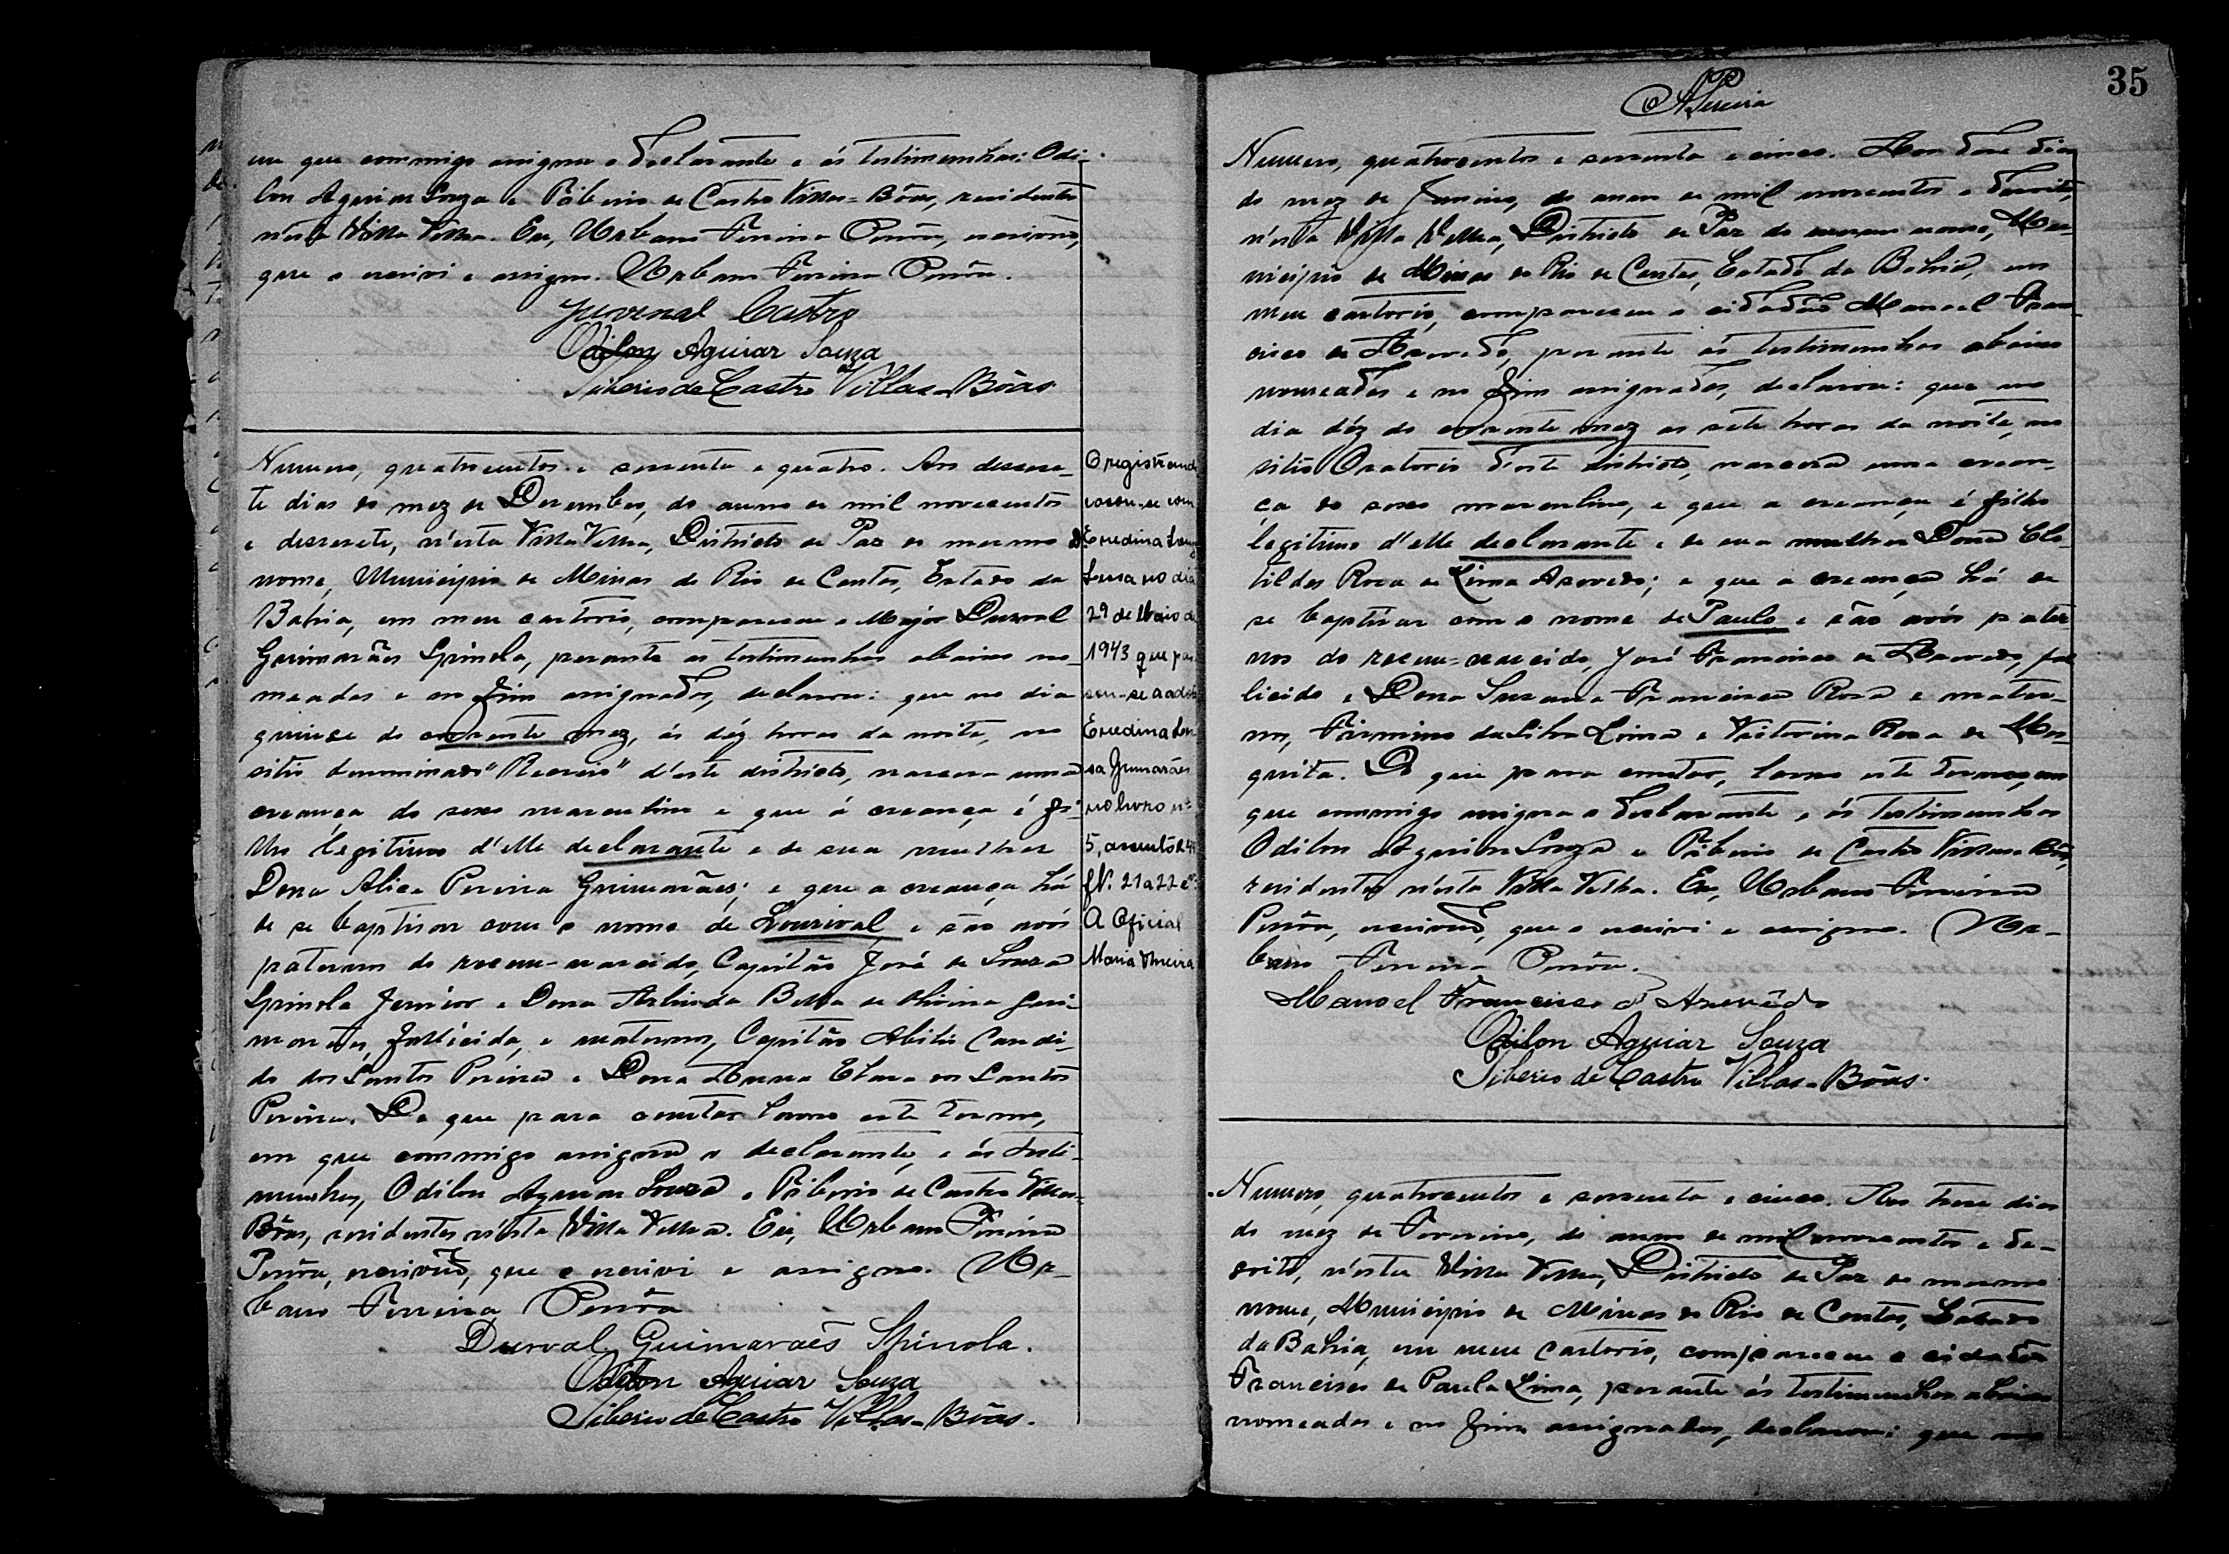 em que commigo assigna o declarante e ás testimunhas: Odi-
lon Aguiar Souza e Tiberio de Castro Villas-Bôas, residentes
n'esta Villa Velha. Eu, Urbano Ferreira, escrivão,
que o escrivi e assigno. Urbano Ferreira
Juvenal Castro
Odilon Aguiar Souza
Tiberio de Castro Villas-Bôas
Numero, quatrocentos e sessenta e quatro. Aos dessese-
te dias do mez de Dezembro, do anno de mil novecentos
e desesete, n'esta Villa Velha, Districto de Paz do mesmo
nome, Municipio de Minas do Rio de Contas, Estado da
Bahia, em meu cartorio, compareceu o Major Durval
Guimarães Spinola, perante as testimunhas abaixo no-
meadas e no fim assignados, declarou: que no dia
quinze do corrente mez, ás déz horas da noite, no
sitio denominado "Recreio" d'este districto, nasceu uma
creança do sexo masculino e que á creança é fi-
lho legitimo d'elle declarante e de sua mulher
Dona Alice Pereira Guimarães; e que a creança há
de se baptisar com o nome de Lourival, e são avós
paternos do recem-nascido, Capitão José de Souza
Spinola Junior e Dona Bella de Oliveira Gui-
marães, fallicida, e maternos, Capitão Abilio Candi-
do dos Santos Pereira e Dona Anna Clara dos Santos
Pereira. Do que para constar lavro este termo,
em que commigo assigna o declarante, e ás testi-
munhas, Odilon Aguiar Souza e Tiberio de Castro Villas-
Bôas, residentes n'esta Villa Velha. Eu, Urbano Ferreira
escrivão, que o escrivi e assigno. Ur-
bano Ferreira
Durval Guimarães Spinola.
Odilon Aguiar Souza
Tiberio de Castro Villas-Bôas.
O registrando
casou-se com
Eredina
Sousa no dia
29 de Maio de
1943 que pas
sou-se a
Eredina Sou
sa Guimarães
no livro nº
5, assento
fl. 21 a 22
A Oficial
Maria
35
APereira
Numero, quatrocentos e sessenta e cinco. Aos dose dias
do mez de Janeiro, do anno de mil novecentos e desoito,
n'esta Villa Velha, Districto de Paz do mesmo nome, Mu-
nicipio de Minas do Rio de Contas, Estado da Bahia, em
meu cartorio, compareceu o cidadão Manoel Fran-
cisco de Azevedo, perante ás testimunhas abaixo
nomeadas e no fim assignados, declarou: que no
dia déz do corrente mez as sete horas da noite, no
sitio Oratorio d'este districto, nasceu uma crean-
ça do sexo masculino, e que a creança é filho
legitimo d'elle declarante e de sua mulher Dona Clo-
tildes Rosa de Lima Azevedo; e que a creança há de
se baptisar com o nome de Paulo e são avós pater
nos do recem-nascido, José Francisco de Azevedo, fal
licido e Dona Suzana Francisca Rosa e mater-
nos, Firmino da Silva Lima e Victorina Rosa de Mes-
quita. Do que para constar, lavro este termo, em
que commigo assigna o declarante, e ás testimunhas
Odilon Aguiar Souza e Tiberio de Castro Villas-Bôas,
residentes n'esta Villa Velha. Eu, Urbano Ferreira
escrivão, que o escrivi e assigno. Ur-
bano Ferreira
Manoel Francisco d' Azevêdo
Odilon Aguiar Souza
Tiberio de Castro Villas-Bôas.
Numero, quatrocentos e sessenta e cinco. Aos treze dias
do mez de Fevereiro, do anno de mil novecentos e de-
zoito, n'esta Villa Velha, Districto de Paz do mesmo
nome, Municipio de Minas do Rio de Contas, Estado
da Bahia, em meu Cartorio, compareceu o cidadão
Francisco de Paula Lima, perante ás testimunhas abaixo
nomeadas e no fim assignados, declarou: que no